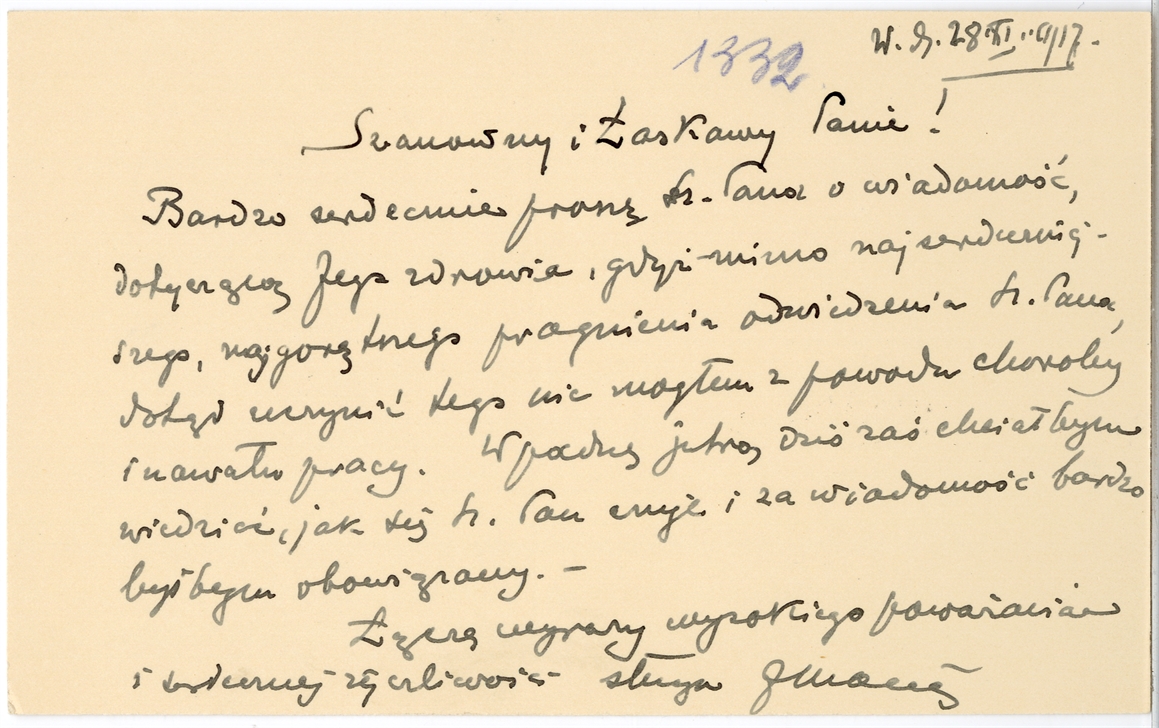 28.XI.1917.
1332
Szanowny i Łaskawy Panie!
Bardzo serdecznie proszę Sz. Pana o wiadomość,
dotyczącą Jego zdrowia, gdyż mimo najserdeczniej-
szego, najgorętszego pragnienia odwiedzenia Sz. Pana,
dotąd uczynić tego nie mogłem z powodu choroby
i nawału pracy. Wpadnę jutro, dziś zaś chciałbym
wiedzieć, jak też Sz. Pan czuje i za wiadomość bardzo
byłbym obowiązany. –
Łączę wyrazy wysokiego poważania
i serdecznej życzliwości sługa